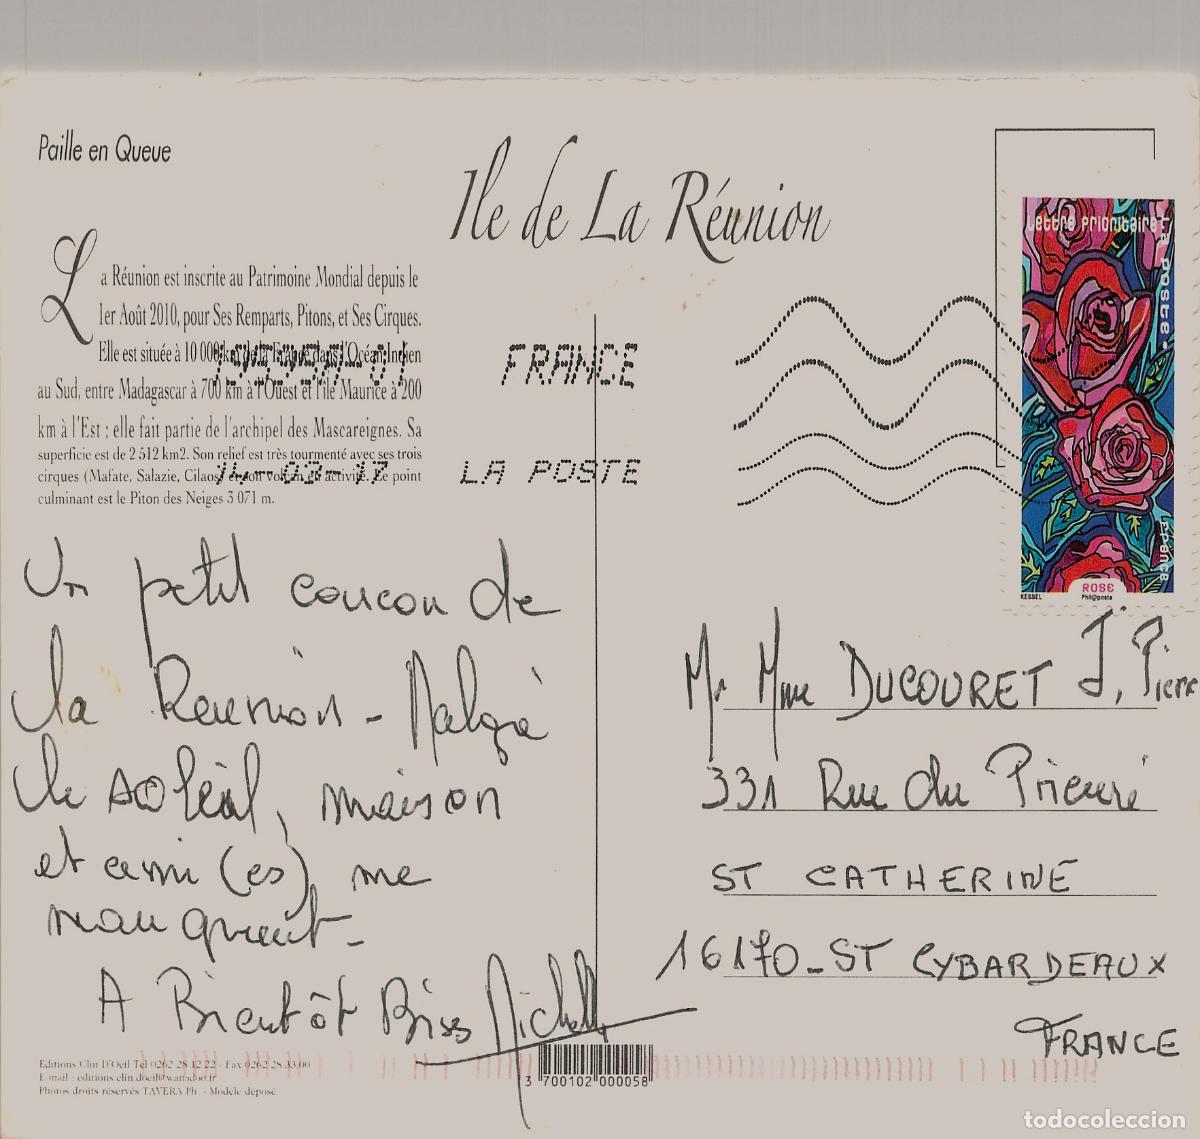 Paille en Queue
Ile de La Réunion
La Réunion est inscrite au Patrimoine Mondial depuis le
1er Août 2010, pour Ses Remparts, Pitons, et Ses Cirques.
Elle est située à 10 000 km de la France dans l'Océan Indien
au Sud, entre Madagascar à 700 km à l'Ouest et l'île Maurice à 200
km à l'Est ; elle fait partie de l'archipel des Mascareignes. Sa
superficie est de 2 512 km2. Son relief est très tourmenté avec ses trois
cirques (Mafate, Salazie, Cilaos) et son volcan en activité. Le point
culminant est le Piton des Neiges 3 071 m.
FRANCE
LA POSTE
14-02-17
Lettre prioritaire
La Poste
France
KESSEL
ROSE
Phil@poste
Un petit coucou de
la Reunion - Malgré
le soleil, maison
et ami (es), me
manquent -
A Bientôt Bises Michelle
Mr Mme DUCOURET J. Pierre
331 Rue du Prieuré
ST CATHERINE
16170 - ST CYBARDEAUX
FRANCE
Editions Clin D'Oeil Tél 0262 28 12 22 - Fax 0262 28 33 00
E-mail : editions.clin.doeil@wanadoo.fr
Photos droits réservés TAVERA Ph - Modèle déposé
3 700102 000058
todocoleccion